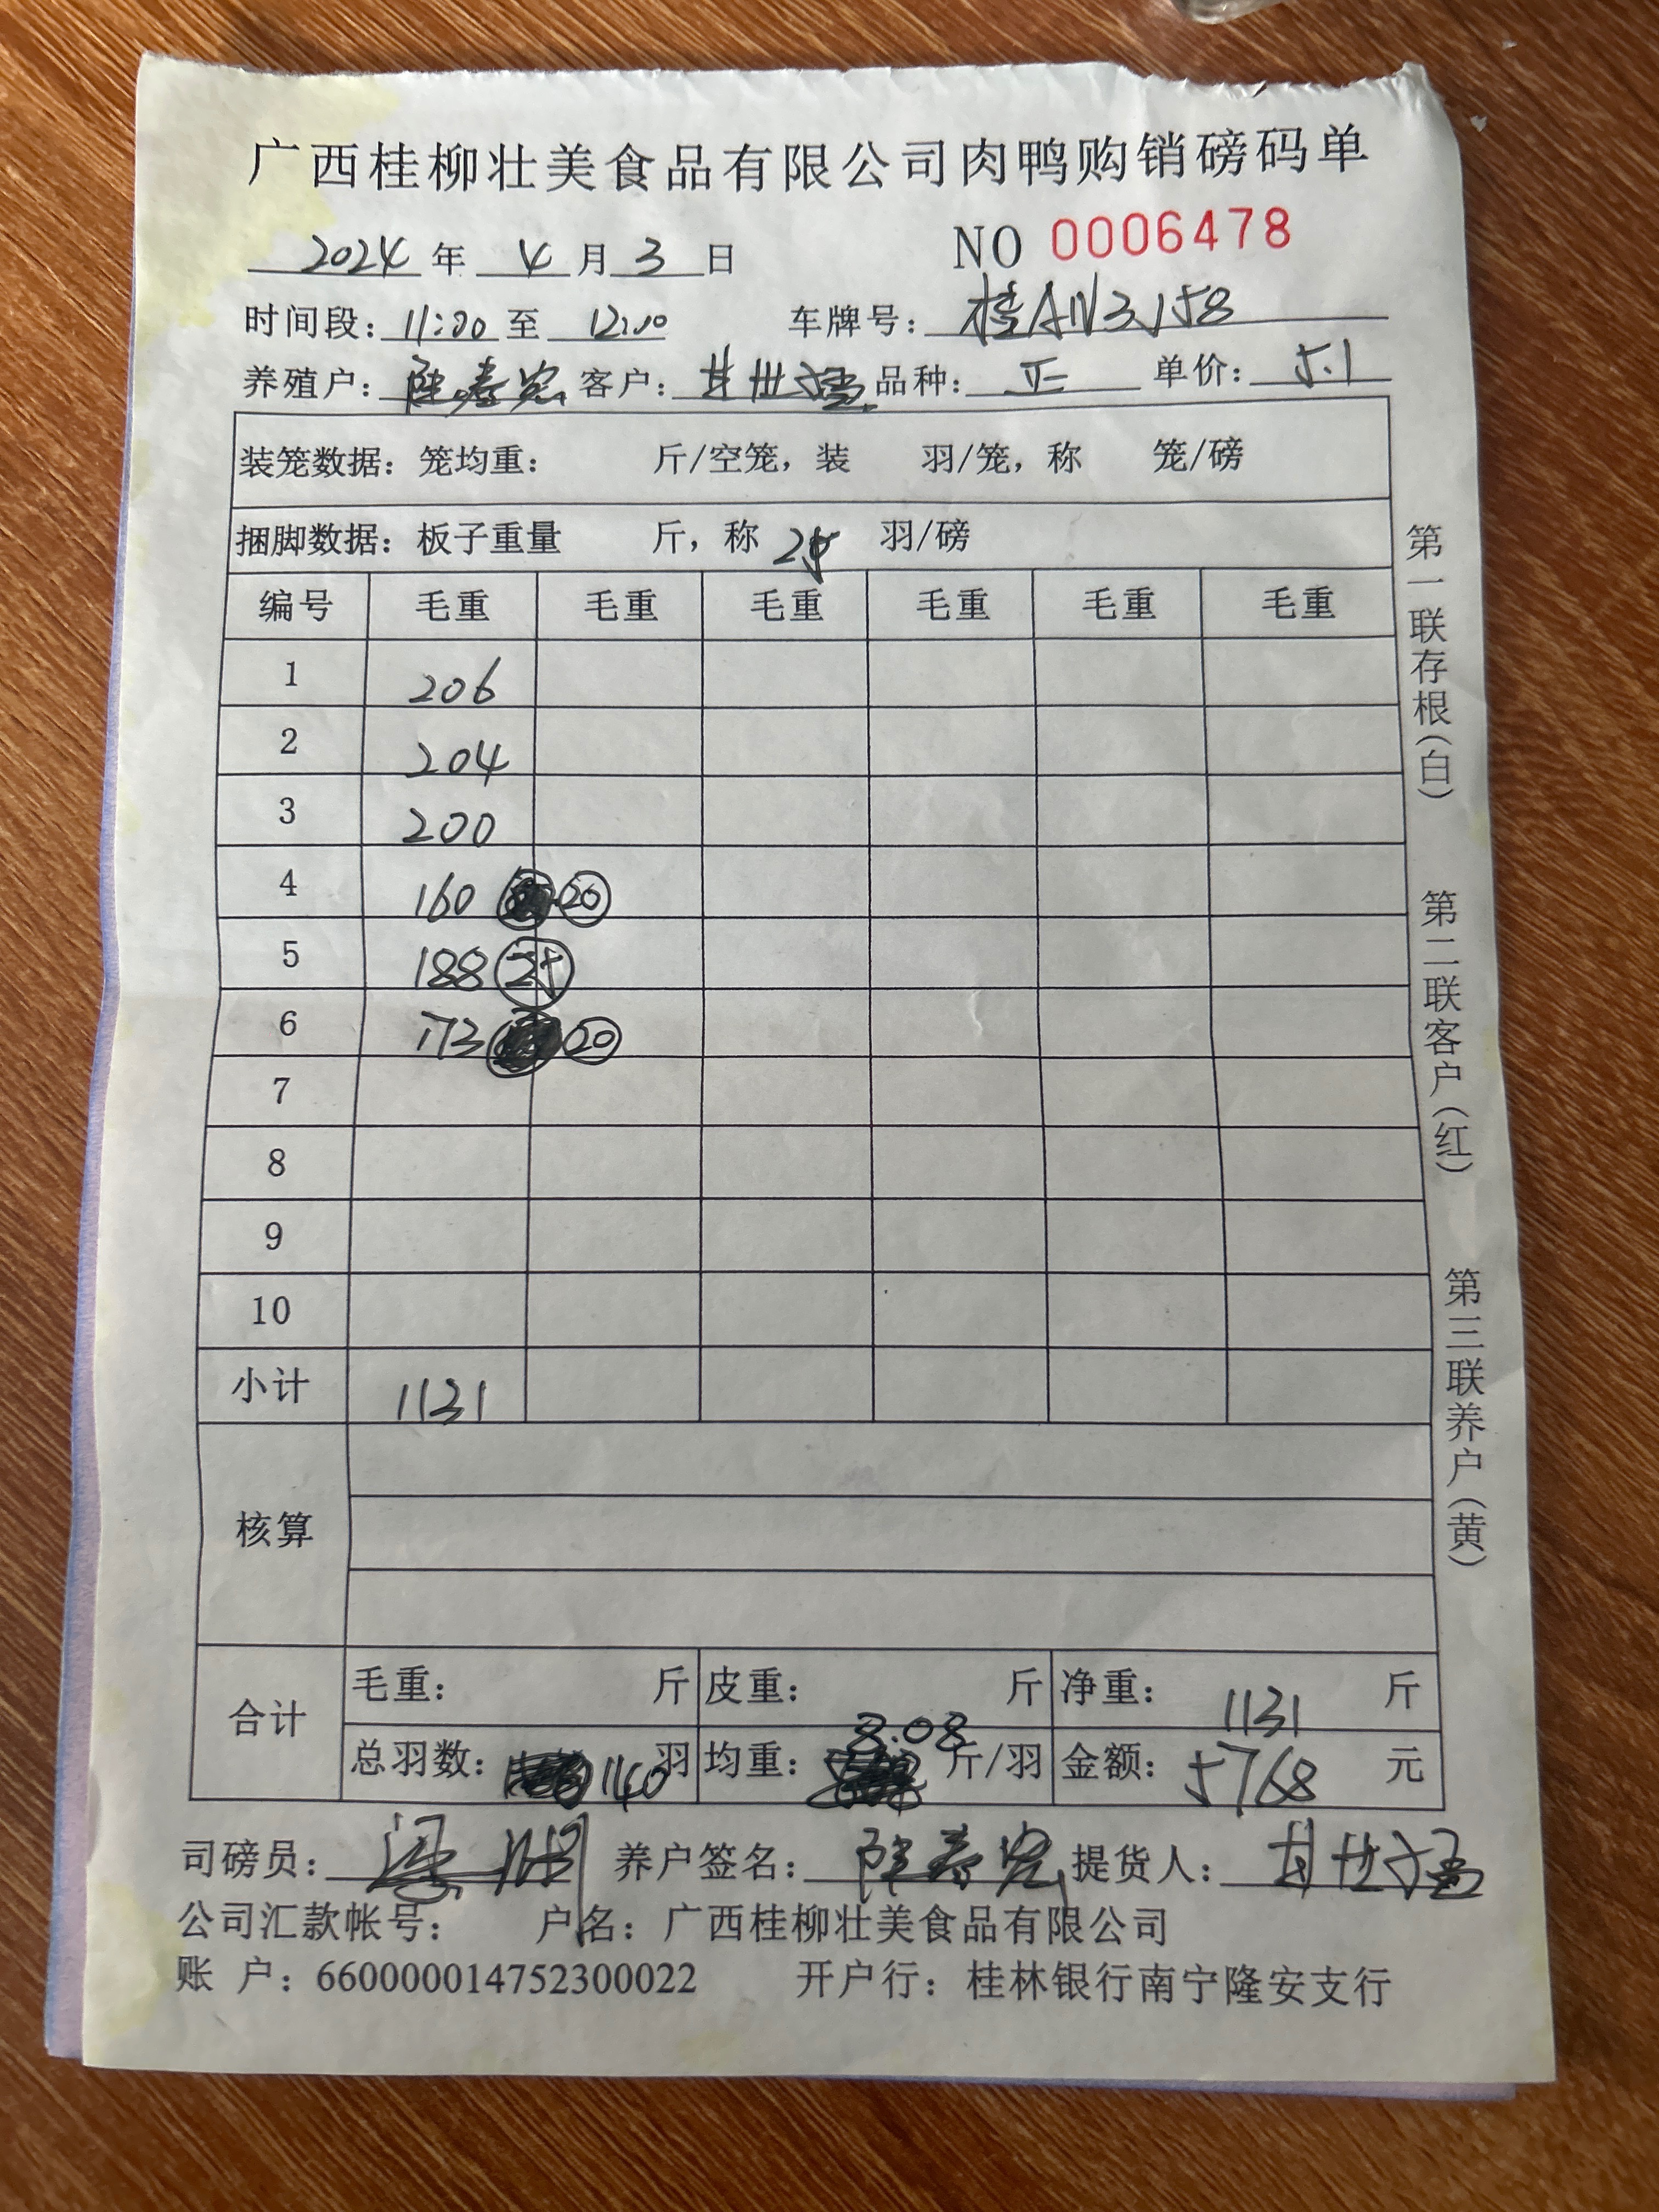 广西桂柳壮美食品有限公司肉鸭购销磅码单
2024 年 4 月 3 日 NO 0006478
时间段: 11:00 至 12:00 车牌号: 桂AN3158
养殖户: 陆春宏 客户: 甘世猛 品种: 正 单价: 5.1
装笼数据: 笼均重: 斤/空笼, 装 羽/笼, 称 笼/磅
捆脚数据: 板子重量 斤, 称 25 羽/磅
编号 毛重 毛重 毛重 毛重 毛重 毛重
1 206
2 204
3 200
4 160 20
5 188 25
6 173 20
7
8
9
10
小计 1131
核算
合计 毛重: 斤 皮重: 斤 净重: 1131 斤
总羽数: 140 羽 均重: 8.08 斤/羽 金额: 5768 元
司磅员: 养户签名: 陆春宏 提货人: 甘世猛
公司汇款帐号: 户名: 广西桂柳壮美食品有限公司
账 户: 660000014752300022 开户行: 桂林银行南宁隆安支行
第一联存根(白)
第二联客户(红)
第三联养户(黄)